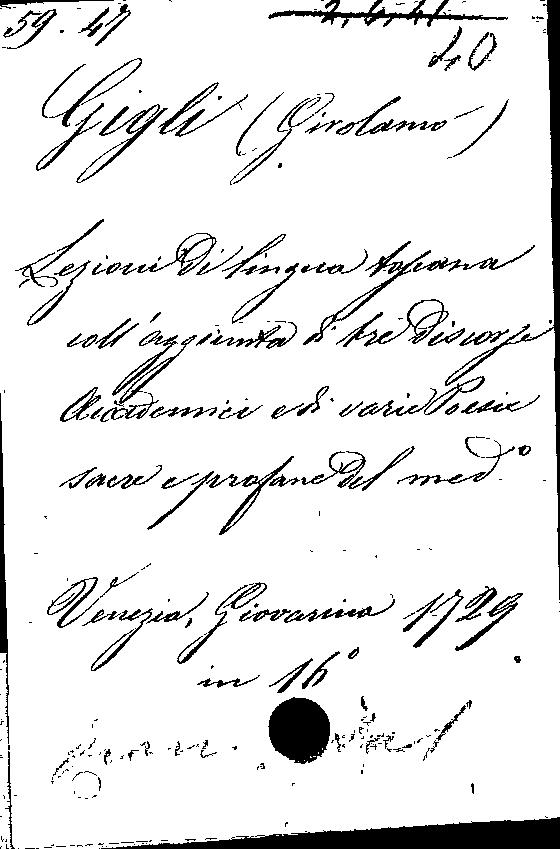 59. 47
2. 6. 41
40
Gigli (Girolamo)
Lezioni di lingua toscana
coll'aggiunta di tre Discorsi
Accademici e di varie Poesie
sacre e profane del med.º
Venezia, Giovanni 1729
in 16º